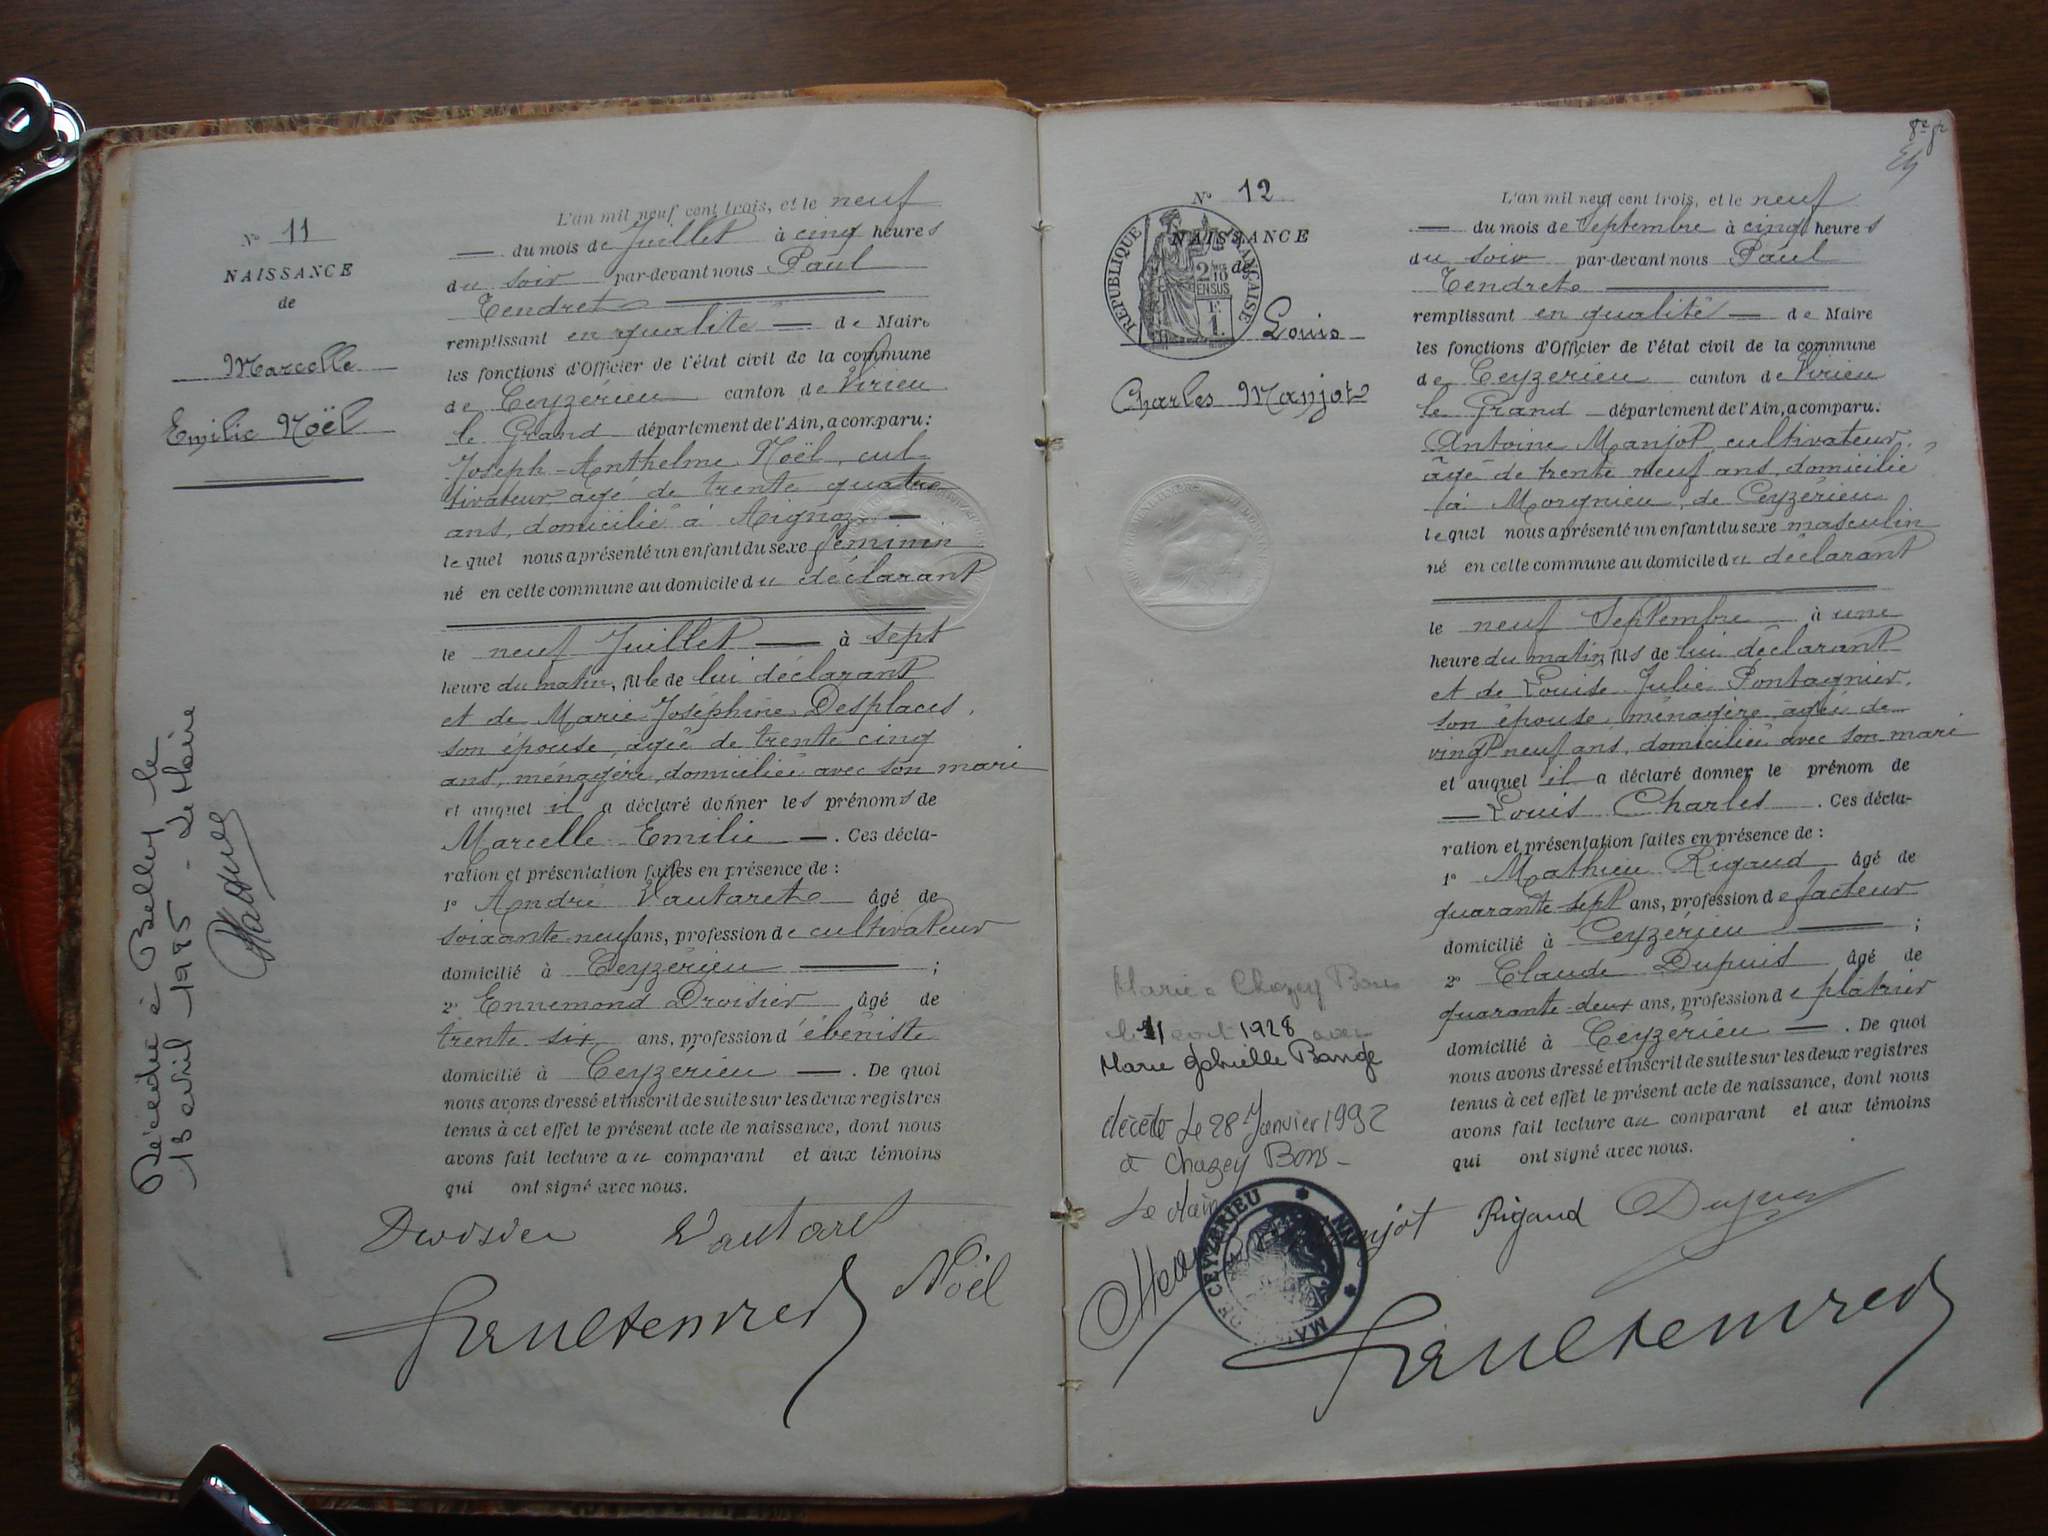 N° 11
NAISSANCE
de
Marcelle
Emilie Noël
L'an mil neuf cent trois, et le neuf
du mois de Juillet à cinq heures
du soir par-devant nous Paul
Tendret
remplissant en qualité de Maire
les fonctions d'Officier de l'état civil de la commune
de Ceyzérieu canton de Virieu
le Grand département de l'Ain, a comparu :
Joseph-Anthelme Noël, cul-
tivateur, agé de trente quatre
ans, domicilié à Aignoz
lequel nous a présenté un enfant du sexe féminin
né en cette commune au domicile du déclarant
le neuf Juillet à sept
heure du matin, fille de lui déclarant
et de Marie Joséphine Desplaces,
son épouse, agée de trente cinq
ans, ménagère, domiciliée avec son mari
et auquel il a déclaré donner les prénoms de
Marcelle Emilie . Ces décla-
ration et présentation faites en présence de :
1° André Vautaret âgé de
soixante-neuf ans, profession de cultivateur
domicilié à Ceyzérieu ;
2° Ennemond Droisier âgé de
trente six ans, profession d'ébéniste
domicilié à Ceyzérieu . De quoi
nous avons dressé et inscrit de suite sur les deux registres
tenus à cet effet le présent acte de naissance, dont nous
avons fait lecture au comparant et aux témoins
qui ont signé avec nous.
Droisier Vautaret
Noël
Paul Tendret
Décédée à Belley le
13 avril 1995 - Le Maire
N° 12
NAISSANCE
de
RÉPUBLIQUE FRANÇAISE
2/10 EN SUS
F 1
Louis
Charles Manjot
L'an mil neuf cent trois, et le neuf
du mois de Septembre à cinq heures
du soir par-devant nous Paul
Tendret
remplissant en qualité de Maire
les fonctions d'Officier de l'état civil de la commune
de Ceyzérieu canton de Virieu
le Grand département de l'Ain, a comparu.
Antoine Manjot, cultivateur,
âgé de trente neuf ans, domicilié
à Morgnieu, de Ceyzérieu
lequel nous a présenté un enfant du sexe masculin
né en cette commune au domicile du déclarant
le neuf Septembre à une
heure du matin, fils de lui déclarant
et de Louise Julie Pontagnier,
son épouse, ménagère, agée de
vingt neuf ans, domiciliée avec son mari
et auquel il a déclaré donner le prénom de
Louis Charles . Ces décla-
ration et présentation faites en présence de :
1° Mathieu Rigaud âgé de
quarante-sept ans, profession de facteur
domicilié à Ceyzérieu ;
2° Claude Dupuis âgé de
quarante-deux ans, profession de plâtrier
domicilié à Ceyzérieu . De quoi
nous avons dressé et inscrit de suite sur les deux registres
tenus à cet effet le présent acte de naissance, dont nous
avons fait lecture au comparant et aux témoins
qui ont signé avec nous.
Marié à Chazey Bons
le 11 août 1928 avec
Marie Gabrielle Bange
décédé Le 28 Janvier 1992
à Chazey Bons
Le Maire
MAIRIE DE CEYZERIEU * AIN *
Manjot Rigaud Dupuis
Paul Tendret